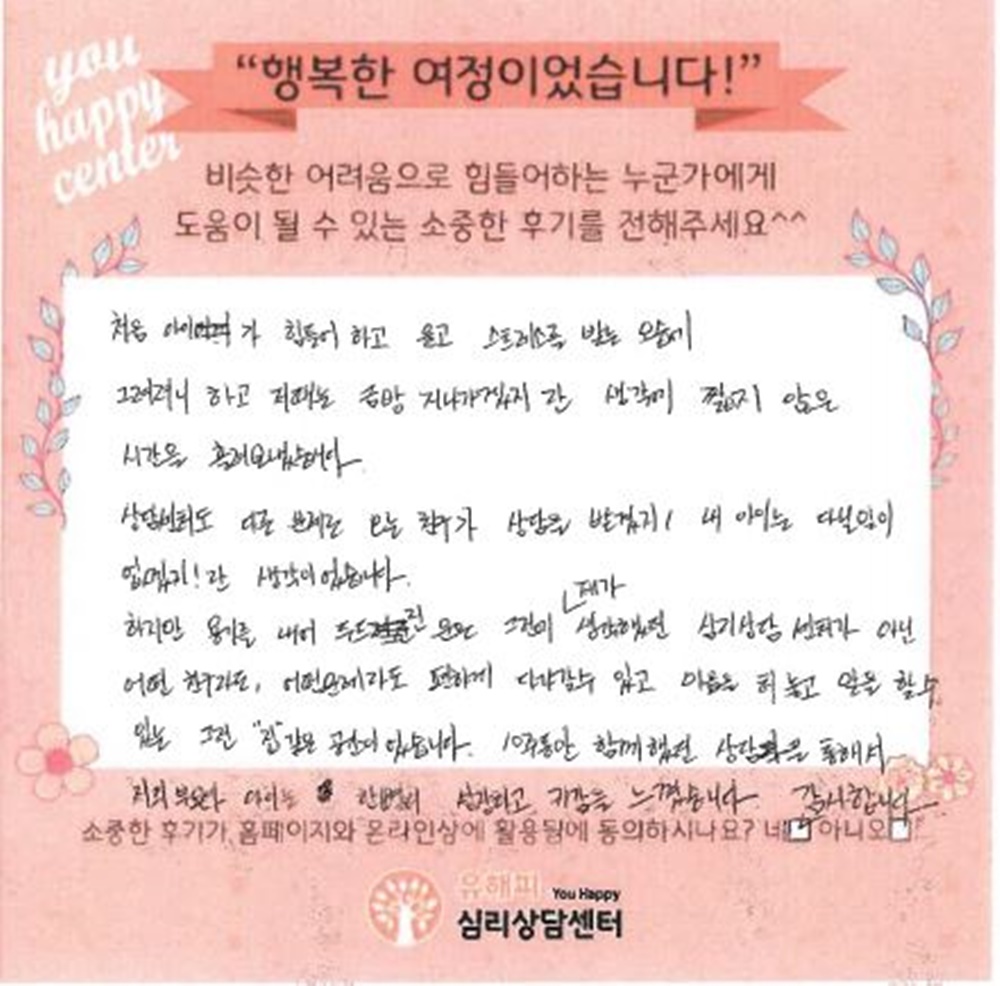 you
happy
center
“행복한 여정이었습니다!”
비슷한 어려움으로 힘들어하는 누군가에게
도움이 될 수 있는 소중한 후기를 전해주세요^^
처음 아이 가 힘들어 하고 울고 스트레스를 받는 모습에
그러려니 하고 지 금방 지나가겠지 란 생각에 짧지 않은
시간을 흘려보냈습니다.
상담센터도 다른 문제로 오는 친구가 상담을 받겠지! 내 아이는 다닐일이
없겠지! 란 생각이었습니다.
제가
하지만 용기를 내어 두드린 문은 그런 생각했던 심리상담 센터가 아닌
어떤 친구라도, 어떤문제라도 편하게 다가갈수 있고 마음을 터 놓고 말을 할 수
있는 그런 "집"같은 공간이었습니다. 10주동안 함께했던 상담을 통해서
저희 부모와 아이는 한 성장되고 치유됨을 느꼈습니다. 감사합니다.
소중한 후기가 홈페이지와 온라인상에 활용됨에 동의하시나요? 네 아니오
유해피 You Happy
심리상담센터